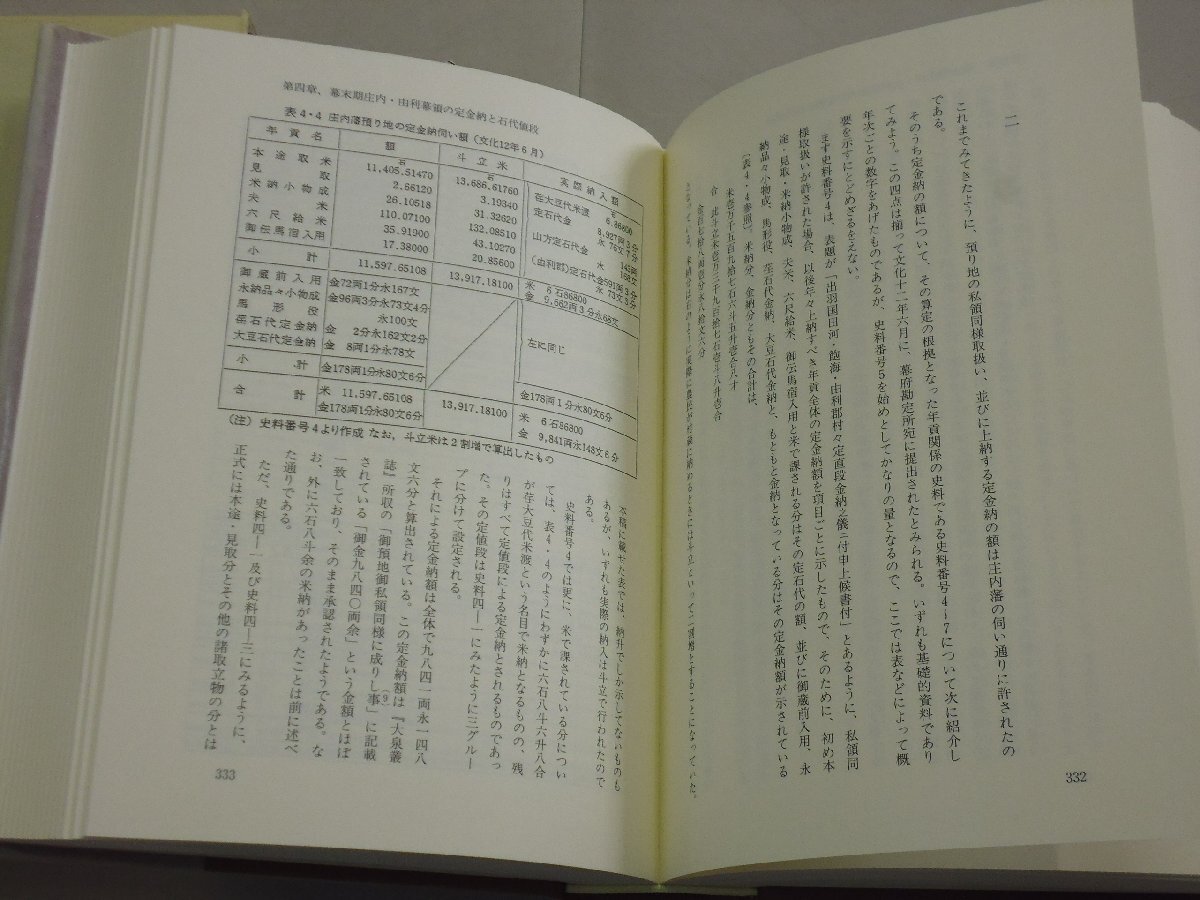 二
これまでみてきたように、預り地の私領同様取扱い、並びに上納する定金納の額は庄内藩の伺い通りに許されたの
である。
そのうち定金納の額について、その算定の根拠となった年貢関係の史料である史料番号4〜7について次に紹介し
てみよう。この四点は揃って文化十二年六月に、幕府勘定所宛に提出されたとみられる。いずれも基礎的資料であり
年次ごとの数字をあげたものであるが、史料番号5を始めとしてかなりの量となるので、ここでは表などによって概
要を示すにとどめざるをえない。
まず史料番号4は、表題が「出羽国田河・飽海・由利郡村々定直段金納之儀ニ付申上候書付」とあるように、私領同
様取扱いが許された場合、以後年々上納すべき年貢全体の定金納額を項目ごとに示したもので、そのために、初め本
途・見取・米納小物成、夫米、六尺給米、御伝馬宿入用と米で課される分はその定石代の額、並びに御蔵前入用、永
納品々小物成、馬形役、荏石代金納、大豆石代金納と、もともと金納となっている分はその定金納額が示されている
〔表4・4参照〕。米納分、金納分ともその合計は、
米壱万千五百九拾七石六斗五升壱合八才
此斗立米壱万三千九百拾七石壱斗八升壱合
332
第四章、幕末期庄内・由利幕領の定金納と石代値段
表4・4 庄内藩預り地の定金納伺い額(文化12年6月)
年貢名 額 斗立米 実際納入額
本途取米 石 11,405.51470 石 13,686.61760 荏大豆代米渡 石 6.86800
見取 2.66120 3.19340 定石代金 8,927両3分 永76文7分
米納小物成 26.10518 31.32620
夫米 110.07100 132.08510 山方定石代金 永 143両 168文
六尺給米 35.91900 43.10270 (由利郡)定石代金591両3分 永73文3分
御伝馬宿入用 17.38000 20.85600
小計 11,597.65108 13,917.18100 米 6石86800 金 9,662両3分永68文
御蔵前入用 金72両1分永167文 左に同じ
永納品々小物成 金96両3分永73文4分
馬形役 永100文
荏石代定金納 金 2分永162文2分
大豆石代定金納 金 8両1分永78文
小計 金178両1分永80文6分 金178両1分永80文6分
合計 米 11,597.65108 金178両1分永80文6分 13,917.18100 米 6石86800 金 9,841両永148文6分
(注) 史料番号4より作成 なお,斗立米は2割増で算出したもの
本稿に載せた表では、納升でしか示してないものも
あるが、いずれも実際の納入は斗立で行われたので
ある。
史料番号4では更に、米で課されている分につい
ては、表4・4のようにわずかに六石八斗六升八合
が荏大豆代米渡という名目で米納となるものの、残
りはすべて定値段による定金納とされるものであっ
た、その定値段は史料四—一にみたように三グルー
プに分けて設定される。
それによる定金納額は全体で九八四一両永一四八
文六分と算出されている。この定金納額は『大泉叢
誌』所収の「御預地御私領同様に成りし事」に記載(9)
されている「御金九八四〇両余」という金額とほぼ
一致しており、そのまま承認されたようである。な
お、外に六石八斗余の米納があったことは前に述べ
た通りである。
ただ、史料四—一及び史料四—三にみるように、
正式には本途・見取分とその他の諸取立物の分とは
333